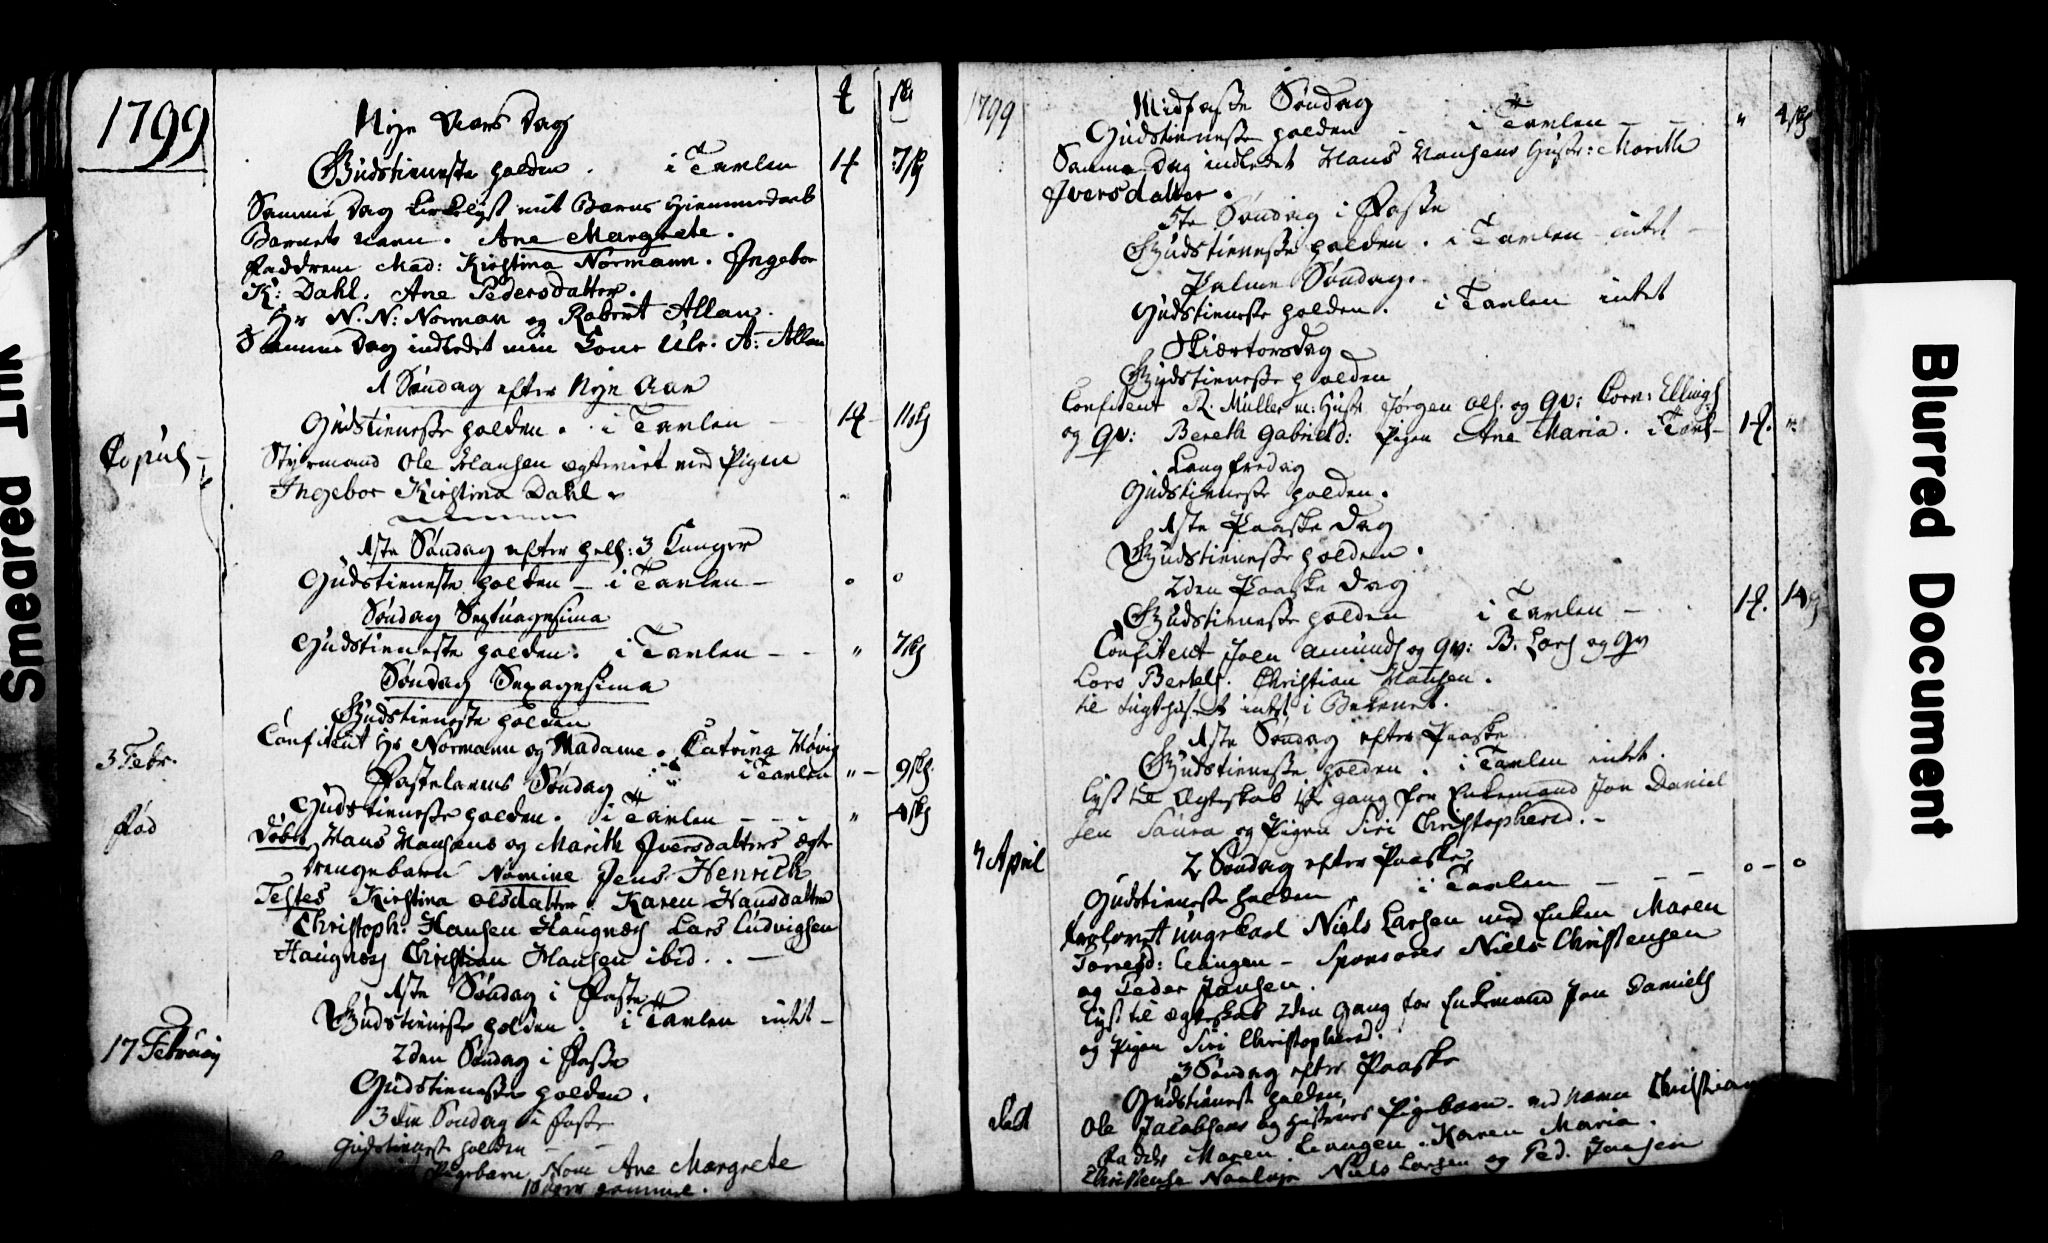 1799
Nye Aars Dag
Gudstieneste holden . i Tavlen 1 7 sk
Samme Dag kirkelyst mit Barns Hiemmedaab
Barnets navn . Ane Margrete .
Faddrene Mad: Kirstina Normann . Ingebor
K: Dahl . Ane Pedersdatter .
Hr N. N: Norman og Robert Allan .
Samme Dag indledet min Kone Ulr: A: Allan
1 Søndag efter Nye Aar
Gudstieneste holden . i Tavlen - 1 - 11 sk
Copul -
Styrmand Ole Hansen ægteviet med Pigen
Ingebor Kirstina Dahl .
1ste Søndag efter Hell: 3 Konger
Gudstieneste holden - i Tavlen - 0 0
Søndag Septuagesima
Gudstieneste holden . i Tavlen - - " 7 sk
Søndag Sexagesima
Gudstieneste holden
3 Febr.
Confitent Hr Normann og Madame . Catrina Høvig
i Tavlen " - 9 sk
Fastelavens Søndag
Gudstieneste holden . i Tavlen - - - " 4 sk
Fød
Døbt Hans Hansens og Marith Iversdatters ægte
drengebarn Nomine Jens Henrich
Testes Kirstina Olsdatter . Karen Hansdatter
Christoph: Hansen Haugnæs Lars Ludvigsen
Haugnæs Christian Hansen ibid . . -
1ste Søndag i Faste
Gudstieneste holden . i Tavlen intet -
17 Februarij
2den Søndag i Faste
Gudstieneste holden .
3die Søndag i Faste
Gudstieneste holden -
Pigebarn Nom Ane Margrete
gammel .
1799
Midfaste Søndag
Gudstieneste holden - i Tavlen - - " 4 sk
Samme Dag indledet Hans Hansens Hustr: Marith
Iversdatter .
5te Søndag i Faste
Gudstieneste holden . i Tavlen intet -
Palme Søndag .
Gudstieneste holden . i Tavlen intet
Skiærtorsdag
Gudstieneste holden
Confitent R. Müller m: Hustr Jørgen Ols. og qv: Corn: Ellings
og qv: Bereth Gabrielsd: Pigen Ane Maria . i Tavl - 1 .
Langfredag
Gudstieneste holden .
1ste Paaske Dag
Gudstieneste holden .
2den Paaske Dag
Gudstieneste holden i Tavlen - 1 . 14
Confitent Joen Amunds og qv: B. Lars og qv
Lars Bertels . Christian Hansen .
til Tugthuset intet i Bekenet .
1ste Søndag efter Paaske
Gudstieneste holden . i Tavlen intet .
Lyst til Ægteskab 1ste gang for Enkemand Jon Daniel
sen Saura og Pigen Siri Christophersd . -
7 April
2 Søndag efter Paaske
Gudstieneste holden i Tavlen - - - 0 - 0
trolovet ungekarl Niels Larsen med Enken Maren
Torresd: Leingen - Sponsores Niels Christensen
og Peder Jansen .
Lyst til ægteskab 2den Gang for Enkemand Jon Daniels
og Pigen Siri Christophersd .
3 Søndag efter Paaske
Gudstienest holden
Ole Jacobsens og Hustrues Pigebarn - ved navn Christian
Faddre Maren Leangen . Karen Maria .
Niels Larsen og Ped. Jansen
Smeared Ink
Blurred Document